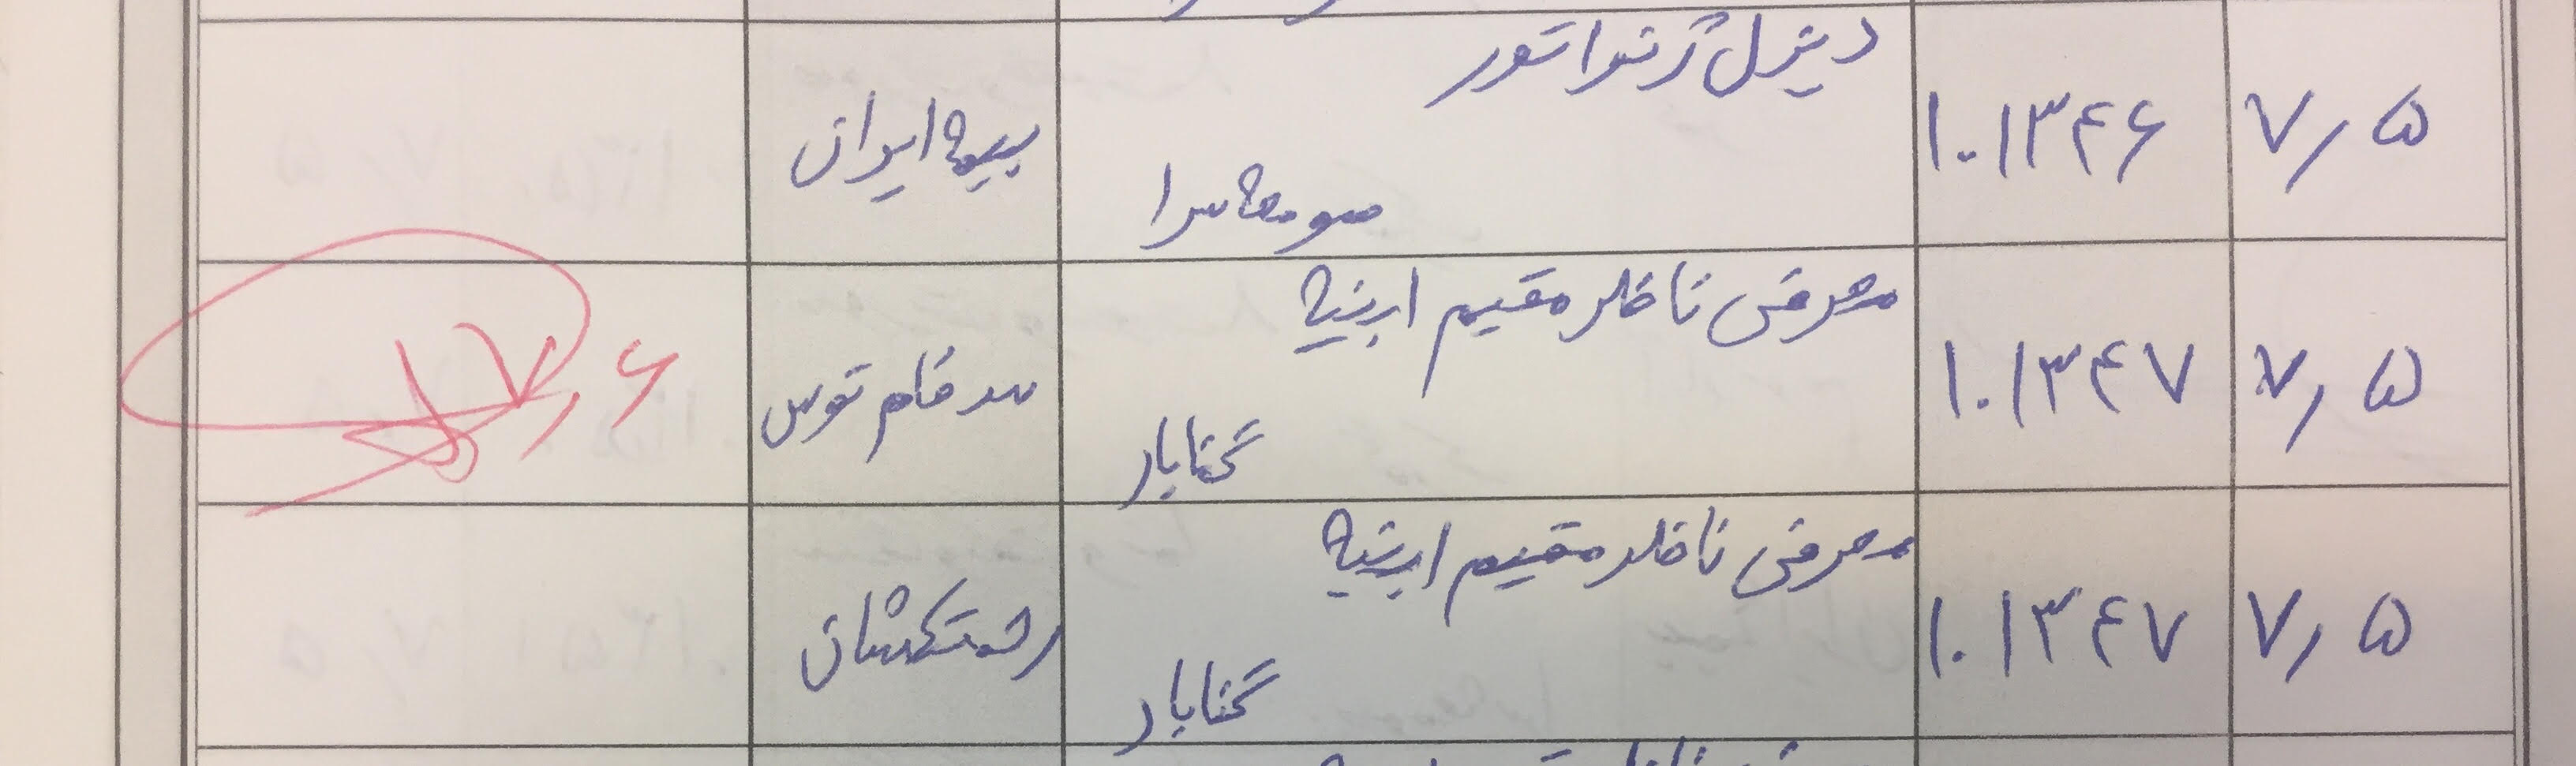 ۷/۵ ۱۰۱۳۴۶ دیزل ژنراتور
صومعه سرا بیمه ایران
۷/۵ ۱۰۱۳۴۷ معرفی ناظر مقیم ابنیه
گناباد سد فام توس
۷/۶
۷/۵ ۱۰۱۳۴۷ معرفی ناظر مقیم ابنیه
گناباد